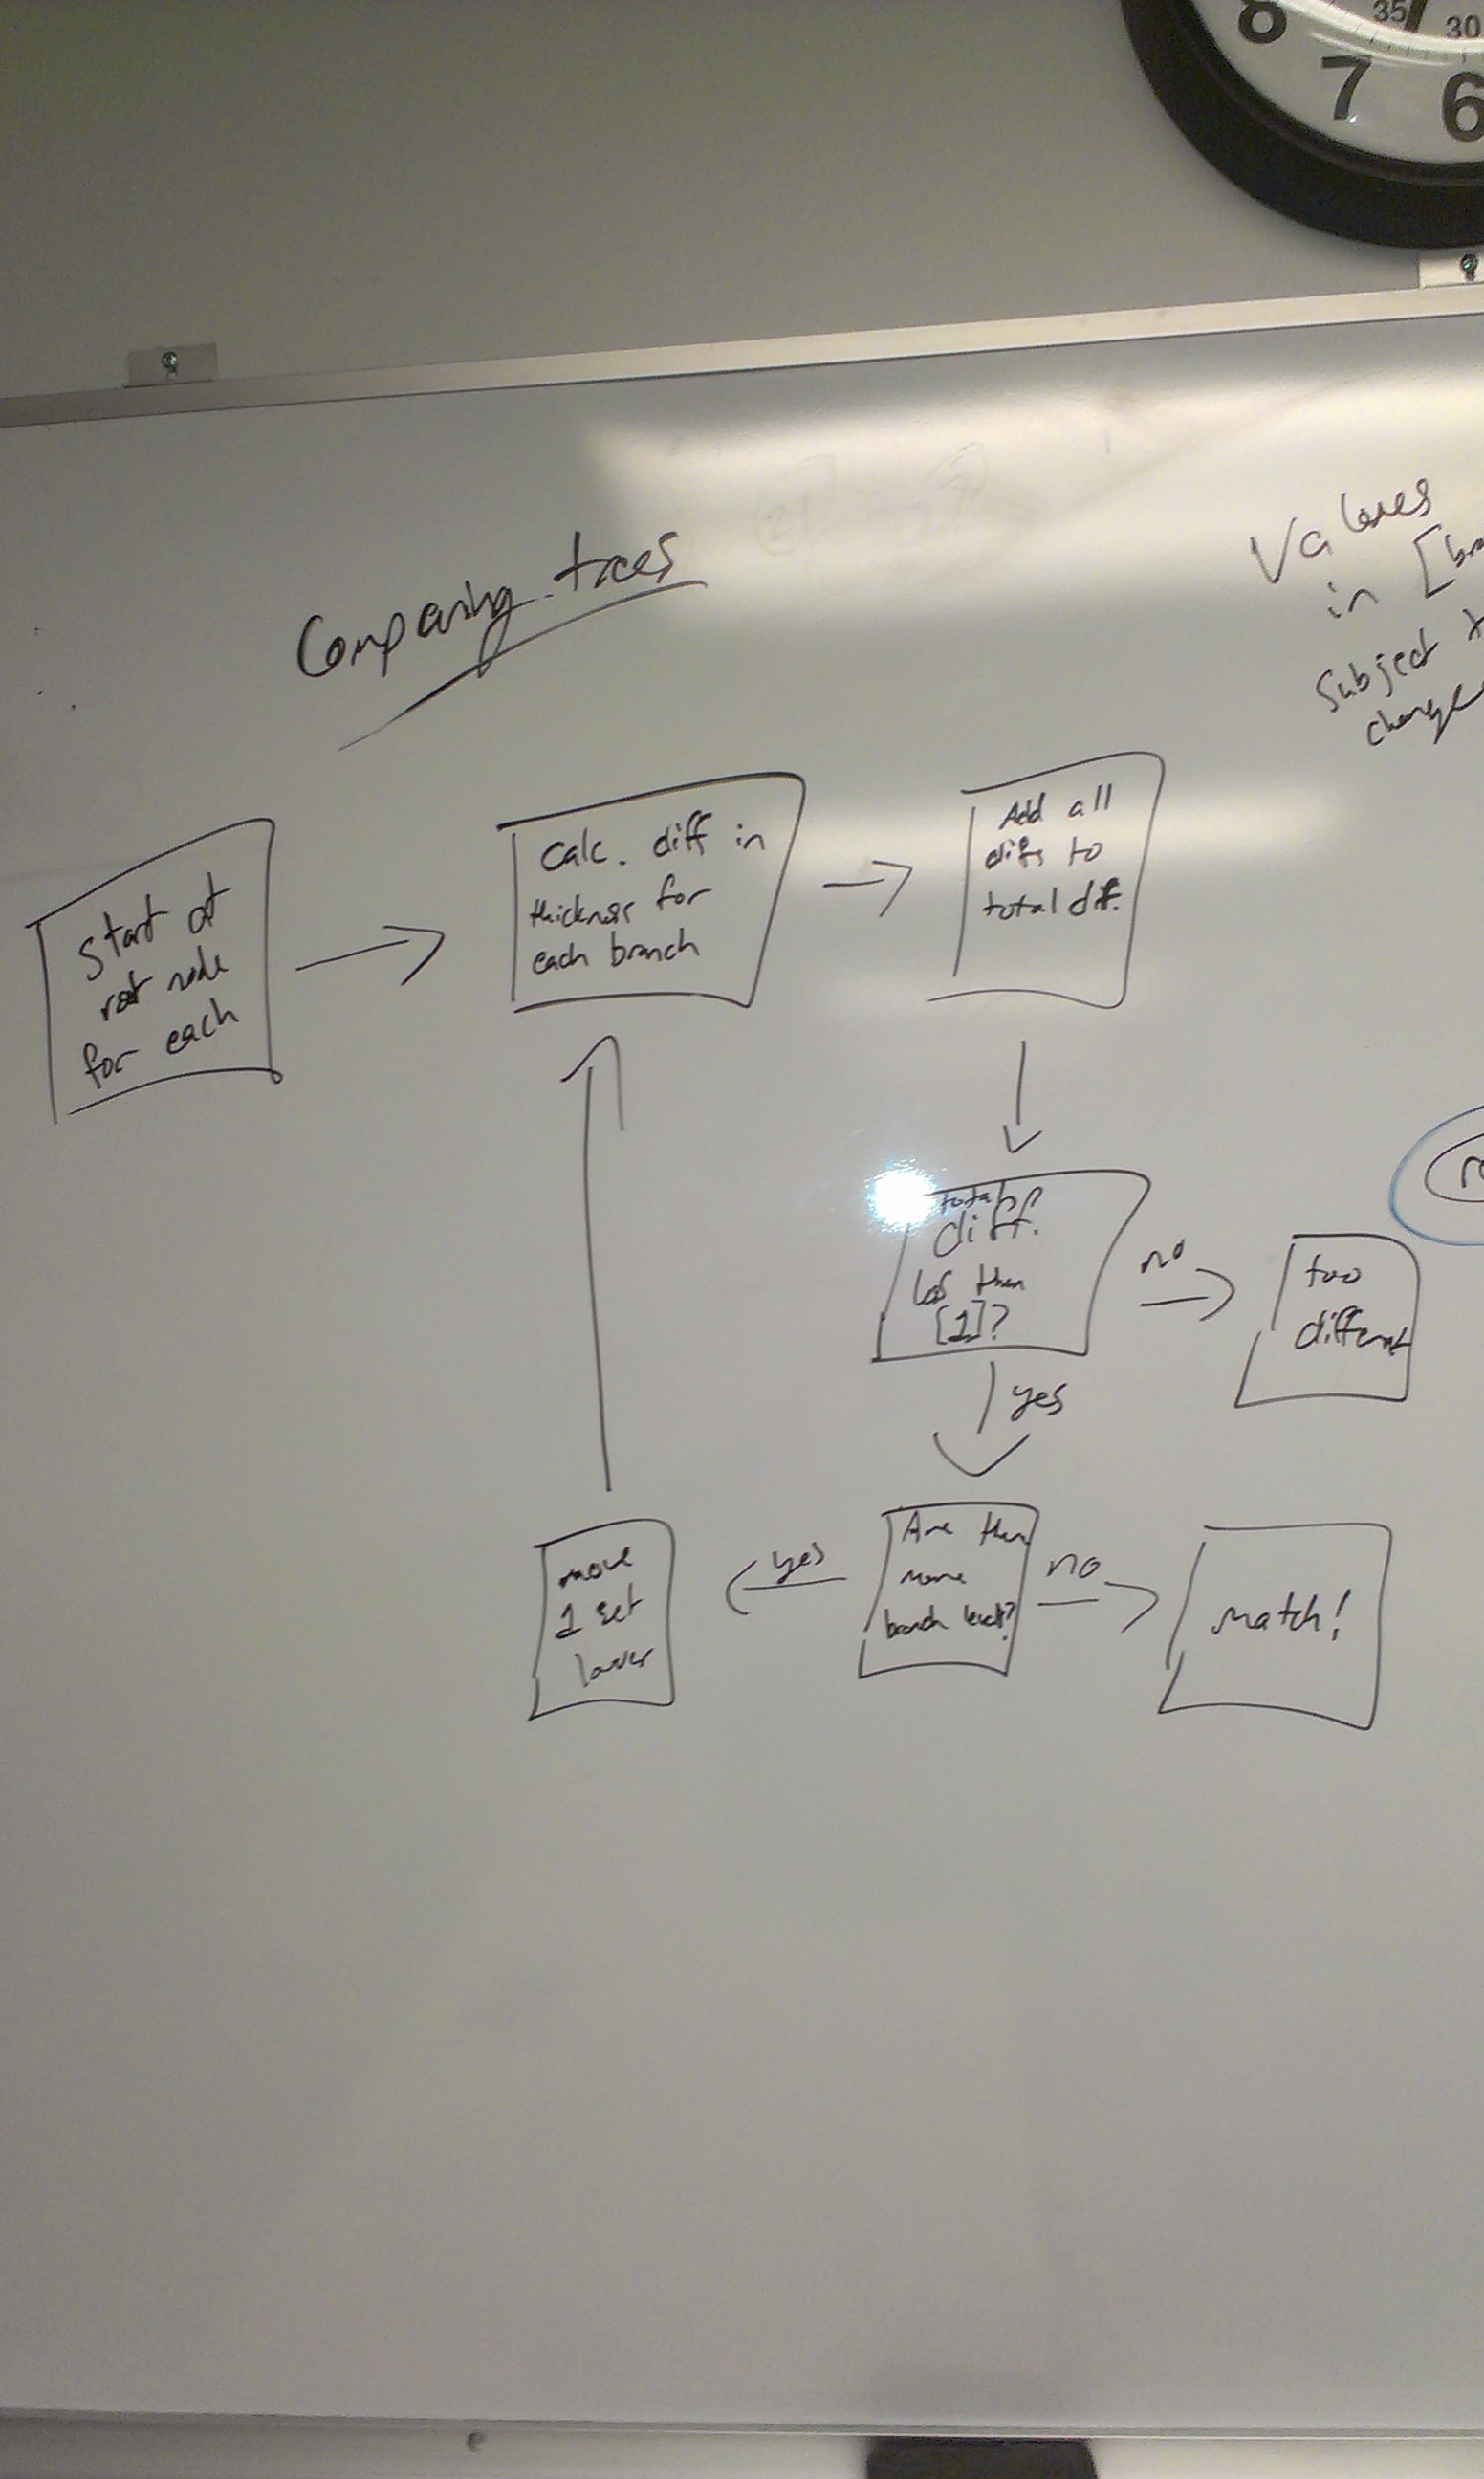 8
7
6
35
30
Comparing trees
Values
in [bra
Subject t
change
Start at
root node
for each
Calc. diff in
thickness for
each branch
Add all
difs to
total dif.
total
diff.
less than
[1]?
no
too
different
yes
Are there
more
branch levels?
yes
no
move
1 set
lower
Match!